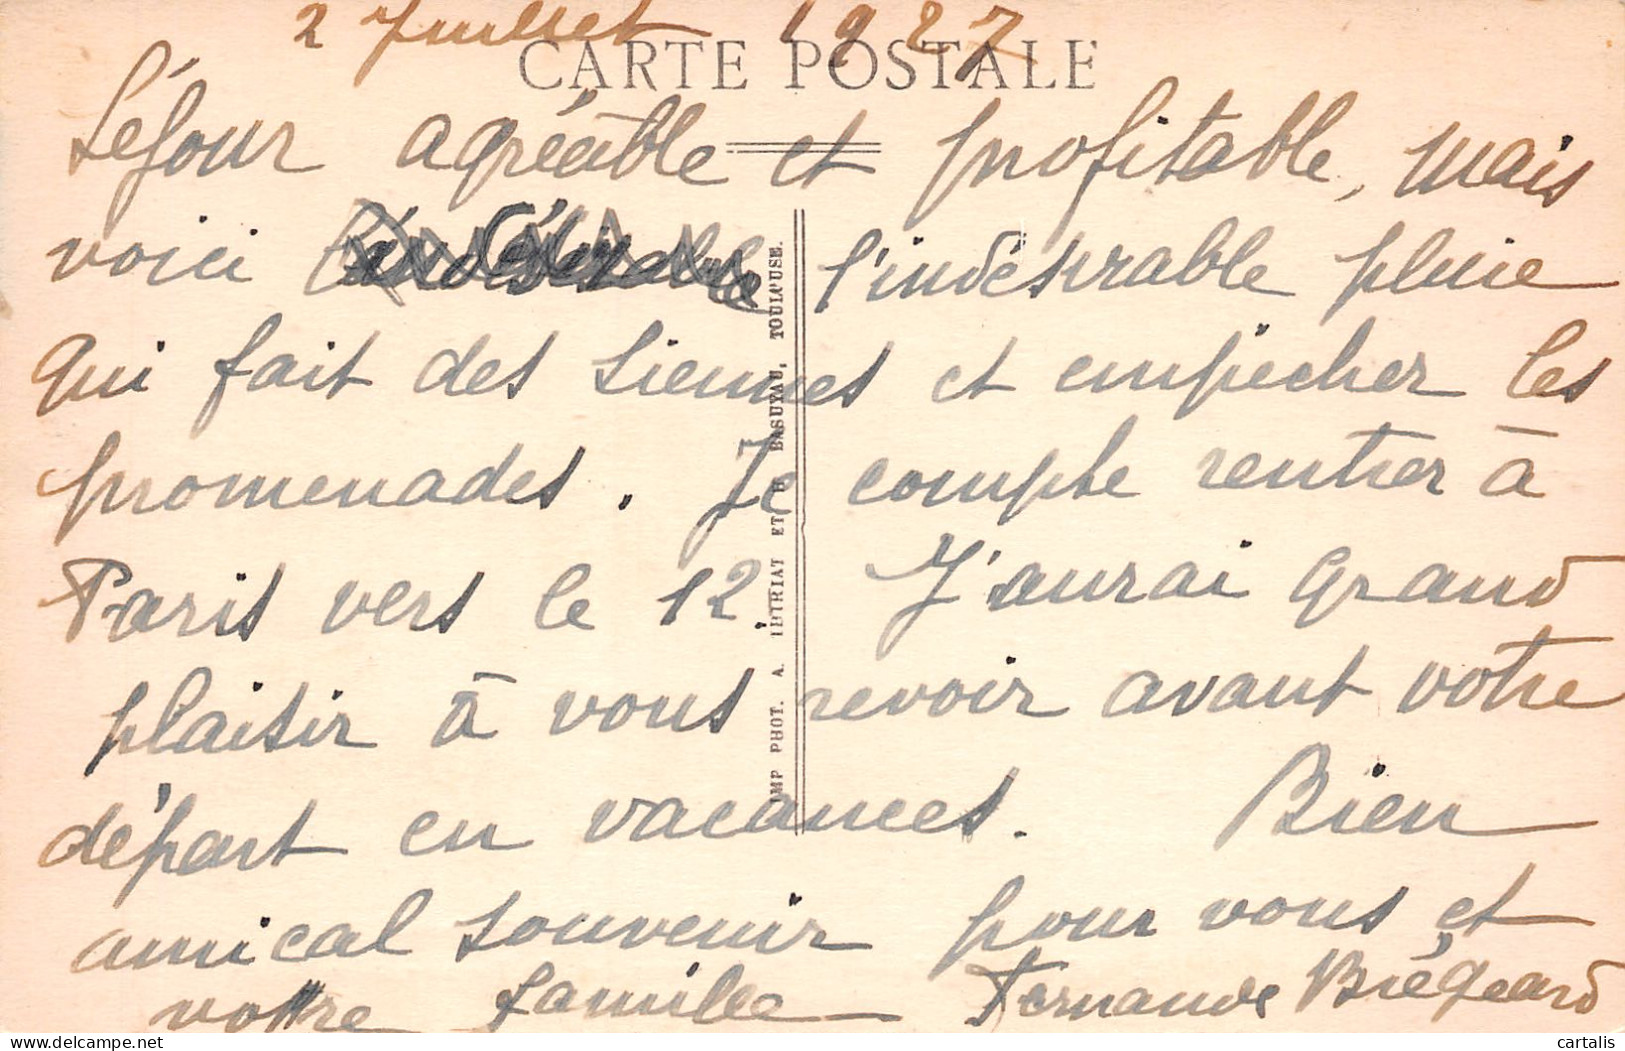 2 Juillet 1927
CARTE POSTALE
Séjour agréable et profitable, mais
voici l'indésirable l'indésirable pluie
qui fait des siennes et empecher les
promenades. Je compte rentrer à
Paris vers le 12. J'aurai grand
plaisir à vous revoir avant votre
départ en vacances. Bien
amical souvenir pour vous et
votre famille Fernande Brégeard
IMP PHOT. A. THIRIAT ET B. BASUYAU, TOULOUSE.
cartalis